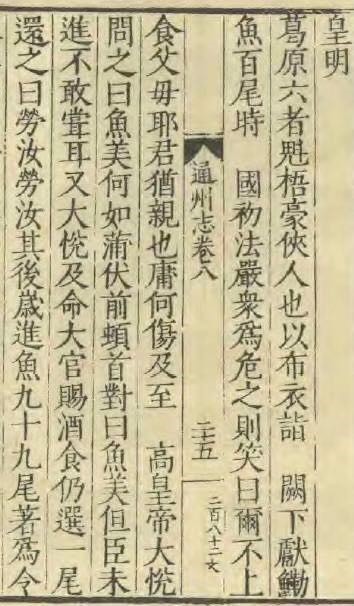 皇明
葛原六者魁梧豪俠人也以布衣詣 闕下獻鱭
魚百尾時 國初法嚴衆爲危之則笑曰爾不上
通州志卷八 三十五 二百八十二文
食父母耶君猶親也庸何傷及至 高皇帝大悅
問之曰魚美何如蒲伏前頓首對曰魚美但臣未
進不敢嘗耳又大悅及命大官賜酒食仍選一尾
還之曰勞汝勞汝其後歲進魚九十九尾著爲令